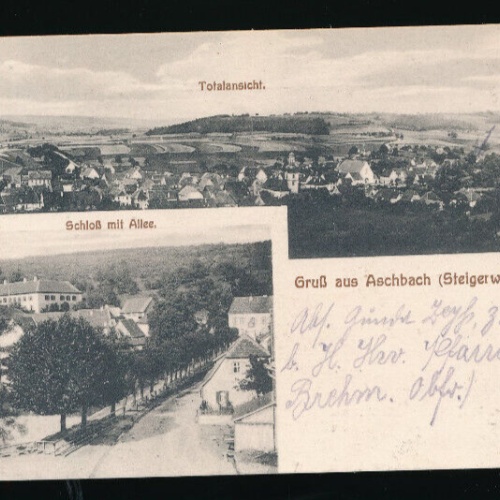 Totalansicht.
Schloß mit Allee.
Gruß aus Aschbach (Steigerw
Abs. Gunda
b. H. H. Pfarr
Brehm.